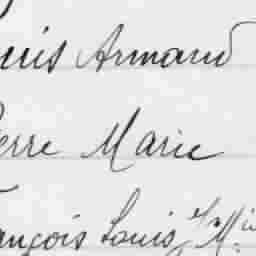 uis Armand
erre Marie
ançois Louis